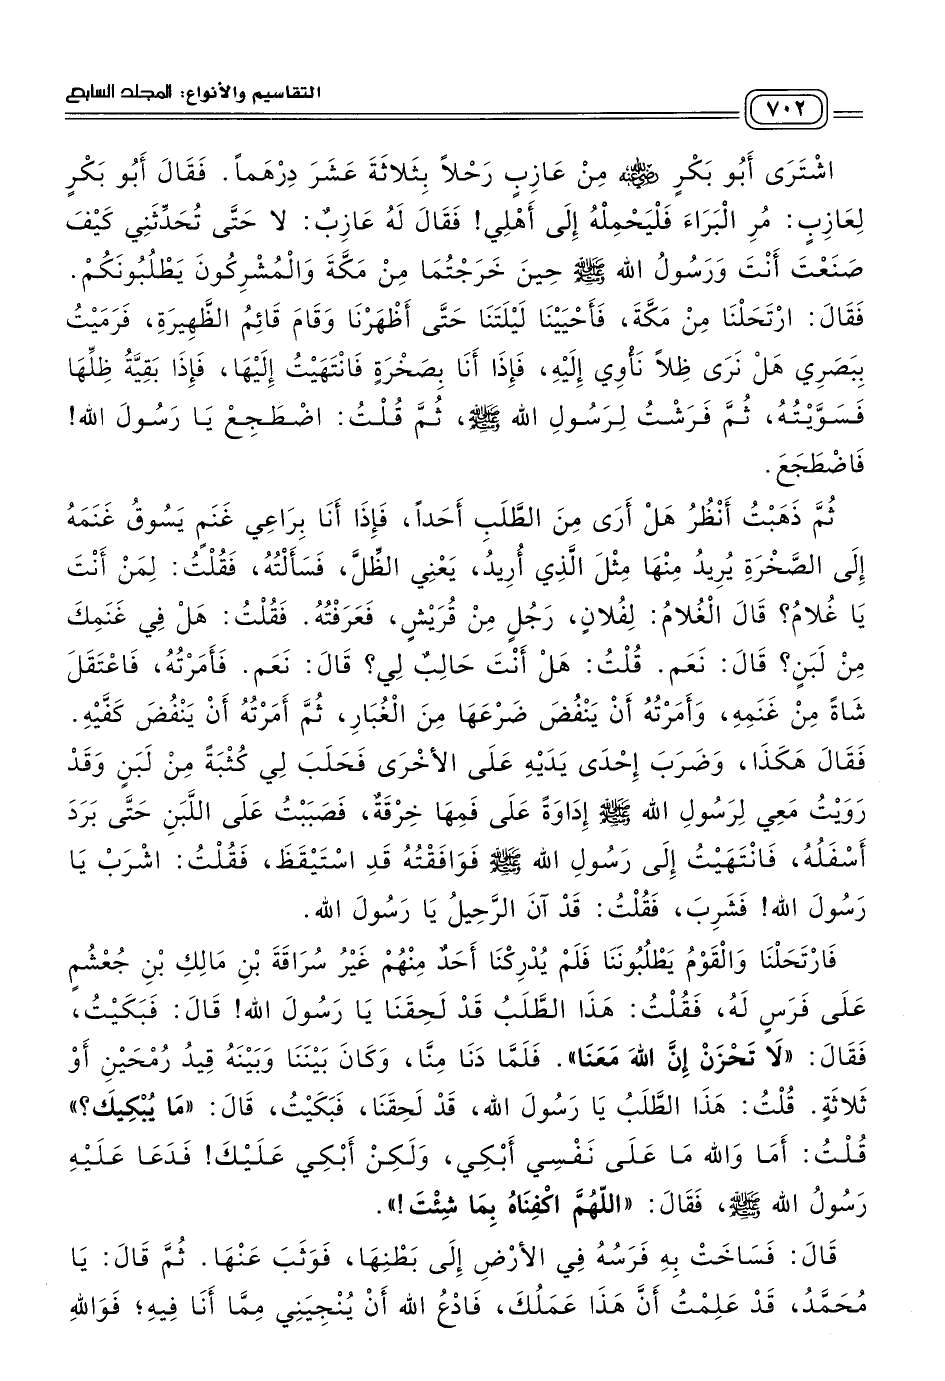 التقاسيم والأنواع: المجلد السابع
٧٠٢
اشْتَرَى أَبُو بَكْرٍ رضي الله عنه مِنْ عَازِبٍ رَحْلاً بِثَلاثَةَ عَشَرَ دِرْهَماً. فَقَالَ أَبُو بَكْرٍ
لِعَازِبٍ: مُرِ الْبَرَاءَ فَلْيَحْمِلْهُ إِلَى أَهْلِي! فَقَالَ لَهُ عَازِبٌ: لا حَتَّى تُحَدِّثَنِي كَيْفَ
صَنَعْتَ أَنْتَ وَرَسُولُ الله ﷺ حِينَ خَرَجْتُمَا مِنْ مَكَّةَ وَالْمُشْرِكُونَ يَطْلُبُونَكُمْ.
فَقَالَ: ارْتَحَلْنَا مِنْ مَكَّةَ، فَأَحْيَيْنَا لَيْلَتَنَا حَتَّى أَظْهَرْنَا وَقَامَ قَائِمُ الظَّهِيرَةِ، فَرَمَيْتُ
بِبَصَرِي هَلْ نَرَى ظِلاًّ نَأْوِي إِلَيْهِ، فَإِذَا أَنَا بِصَخْرَةٍ فَانْتَهَيْتُ إِلَيْهَا، فَإِذَا بَقِيَّةُ ظِلِّهَا
فَسَوَّيْتُهُ، ثُمَّ فَرَشْتُ لِرَسُولِ الله ﷺ، ثُمَّ قُلْتُ: اضْطَجِعْ يَا رَسُولَ الله!
فَاضْطَجَعَ.
ثُمَّ ذَهَبْتُ أَنْظُرُ هَلْ أَرَى مِنَ الطَّلَبِ أَحَداً، فَإِذَا أَنَا بِرَاعِي غَنَمٍ يَسُوقُ غَنَمَهُ
إِلَى الصَّخْرَةِ يُرِيدُ مِنْهَا مِثْلَ الَّذِي أُرِيدُ، يَعْنِي الظِّلَّ، فَسَأَلْتُهُ، فَقُلْتُ: لِمَنْ أَنْتَ
يَا غُلامُ؟ قَالَ الْغُلامُ: لِفُلانٍ، رَجُلٍ مِنْ قُرَيْشٍ، فَعَرَفْتُهُ. فَقُلْتُ: هَلْ فِي غَنَمِكَ
مِنْ لَبَنٍ؟ قَالَ: نَعَم. قُلْتُ: هَلْ أَنْتَ حَالِبٌ لِي؟ قَالَ: نَعَم. فَأَمَرْتُهُ، فَاعْتَقَلَ
شَاةً مِنْ غَنَمِهِ، وَأَمَرْتُهُ أَنْ يَنْفُضَ ضَرْعَهَا مِنَ الْغُبَارِ، ثُمَّ أَمَرْتُهُ أَنْ يَنْفُضَ كَفَّيْهِ.
فَقَالَ هَكَذَا، وَضَرَبَ إِحْدَى يَدَيْهِ عَلَى الأُخْرَى فَحَلَبَ لِي كُثْبَةً مِنْ لَبَنٍ وَقَدْ
رَوَيْتُ مَعِي لِرَسُولِ الله ﷺ إِدَاوَةً عَلَى فَمِهَا خِرْقَةٌ، فَصَبَبْتُ عَلَى اللَّبَنِ حَتَّى بَرَدَ
أَسْفَلُهُ، فَانْتَهَيْتُ إِلَى رَسُولِ الله ﷺ فَوَافَقْتُهُ قَدِ اسْتَيْقَظَ، فَقُلْتُ: اشْرَبْ يَا
رَسُولَ الله! فَشَرِبَ، فَقُلْتُ: قَدْ آنَ الرَّحِيلُ يَا رَسُولَ الله.
فَارْتَحَلْنَا وَالْقَوْمُ يَطْلُبُونَنَا فَلَمْ يُدْرِكْنَا أَحَدٌ مِنْهُمْ غَيْرُ سُرَاقَةَ بْنِ مَالِكِ بْنِ جُعْشُمٍ
عَلَى فَرَسٍ لَهُ، فَقُلْتُ: هَذَا الطَّلَبُ قَدْ لَحِقَنَا يَا رَسُولَ الله! قَالَ: فَبَكَيْتُ،
فَقَالَ: «لَا تَحْزَنْ إِنَّ اللهَ مَعَنَا». فَلَمَّا دَنَا مِنَّا، وَكَانَ بَيْنَنَا وَبَيْنَهُ قِيدُ رُمْحَيْنِ أَوْ
ثَلاثَةٍ. قُلْتُ: هَذَا الطَّلَبُ يَا رَسُولَ الله، قَدْ لَحِقَنَا، فَبَكَيْتُ، قَالَ: «مَا يُبْكِيكَ؟»
قُلْتُ: أَمَا وَالله مَا عَلَى نَفْسِي أَبْكِي، وَلَكِنْ أَبْكِي عَلَيْكَ! فَدَعَا عَلَيْهِ
رَسُولُ الله ﷺ، فَقَالَ: «اللَّهُمَّ اكْفِنَاهُ بِمَا شِئْتَ!».
قَالَ: فَسَاخَتْ بِهِ فَرَسُهُ فِي الأَرْضِ إِلَى بَطْنِهَا، فَوَثَبَ عَنْهَا. ثُمَّ قَالَ: يَا
مُحَمَّدُ، قَدْ عَلِمْتُ أَنَّ هَذَا عَمَلُكَ، فَادْعُ الله أَنْ يُنْجِيَنِي مِمَّا أَنَا فِيهِ؛ فَوَاللهِ